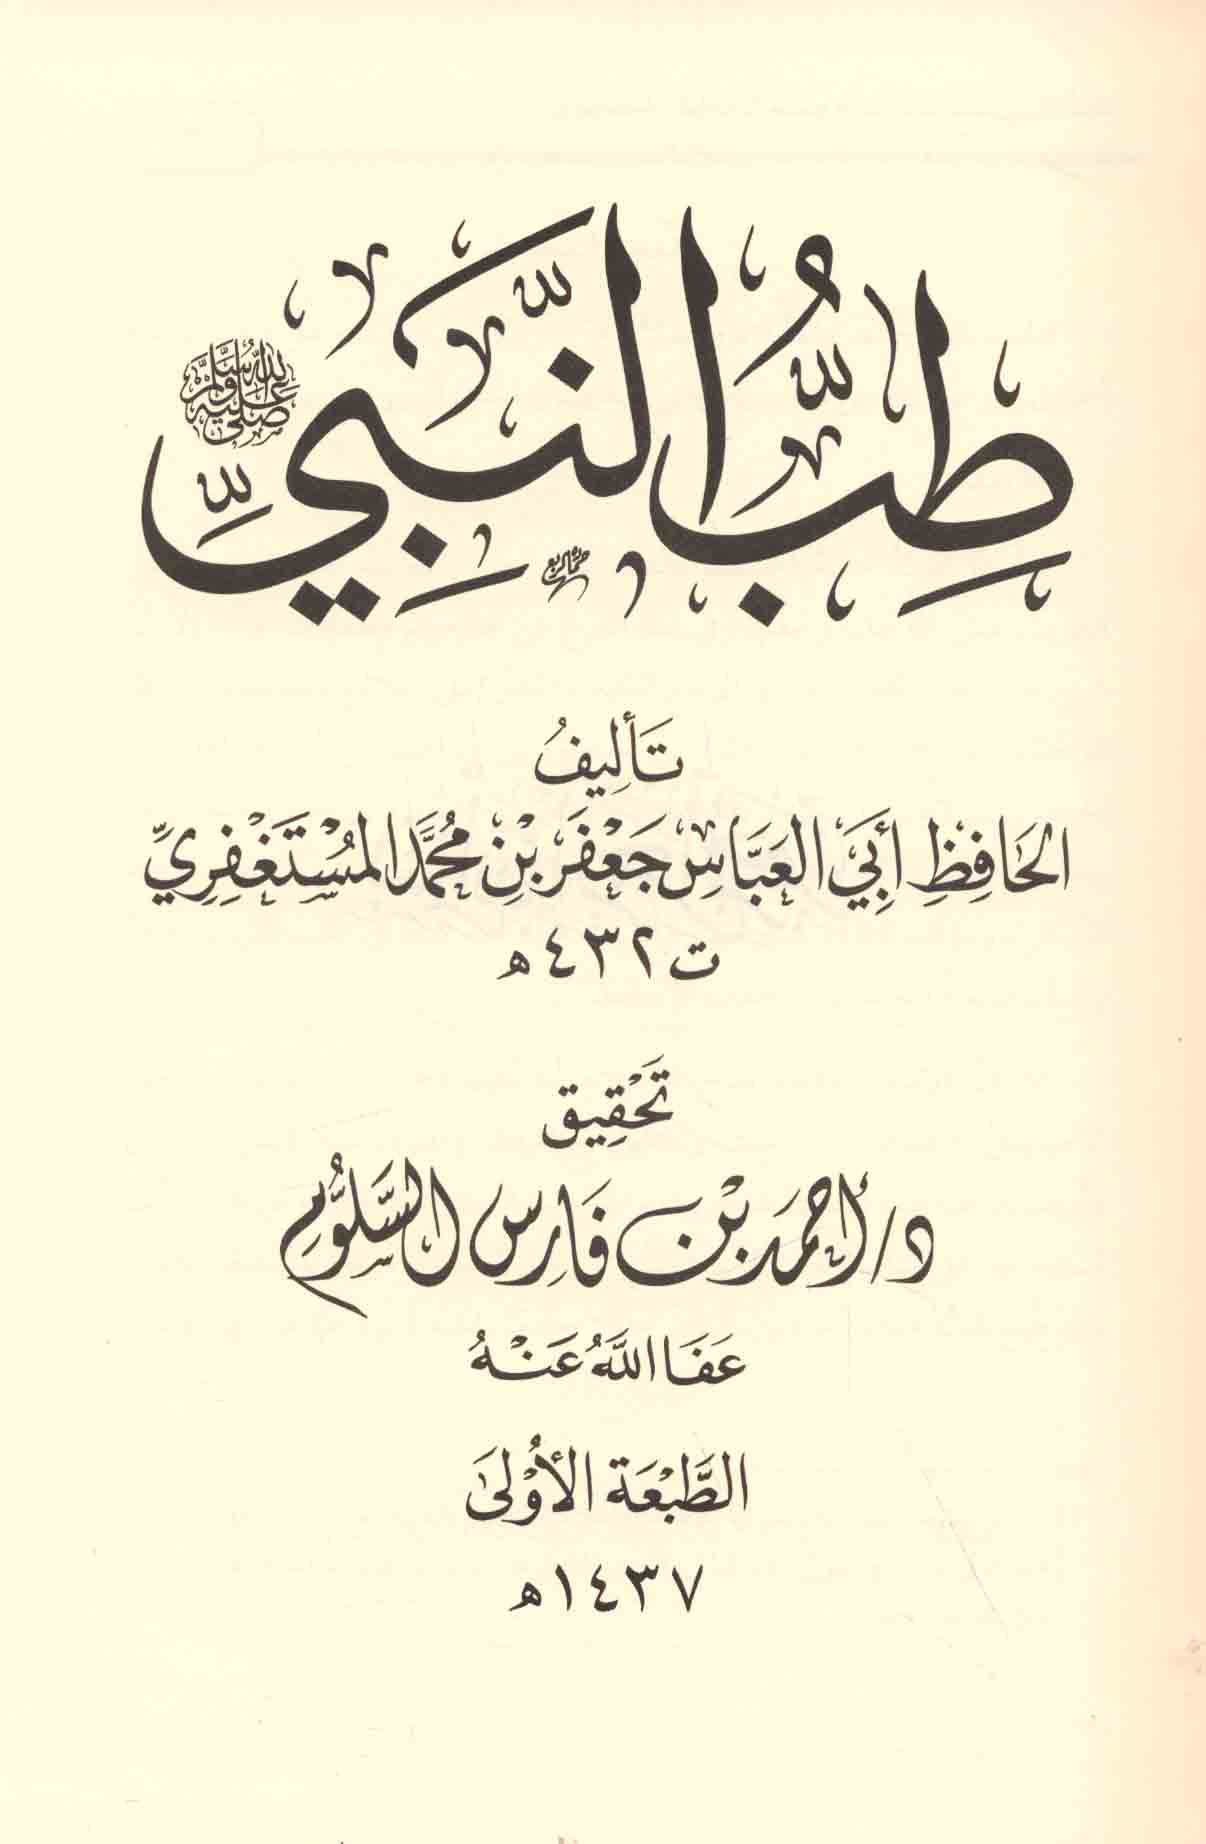 طِبُّ النَّبِيِّ صلى الله عليه وسلم
تَأليفُ
الحَافِظِ أَبِي العَبَّاسِ جَعْفَر بْنِ مُحَمَّد المُسْتَغْفِرِيِّ
ت ٤٣٢ هـ
تَحْقِيق
د/أحمد بْن فَارِس السَّلُّومِ
عَفَا اللَّهُ عَنْهُ
الطَّبْعَة الأُوْلَىٰ
١٤٣٧ هـ